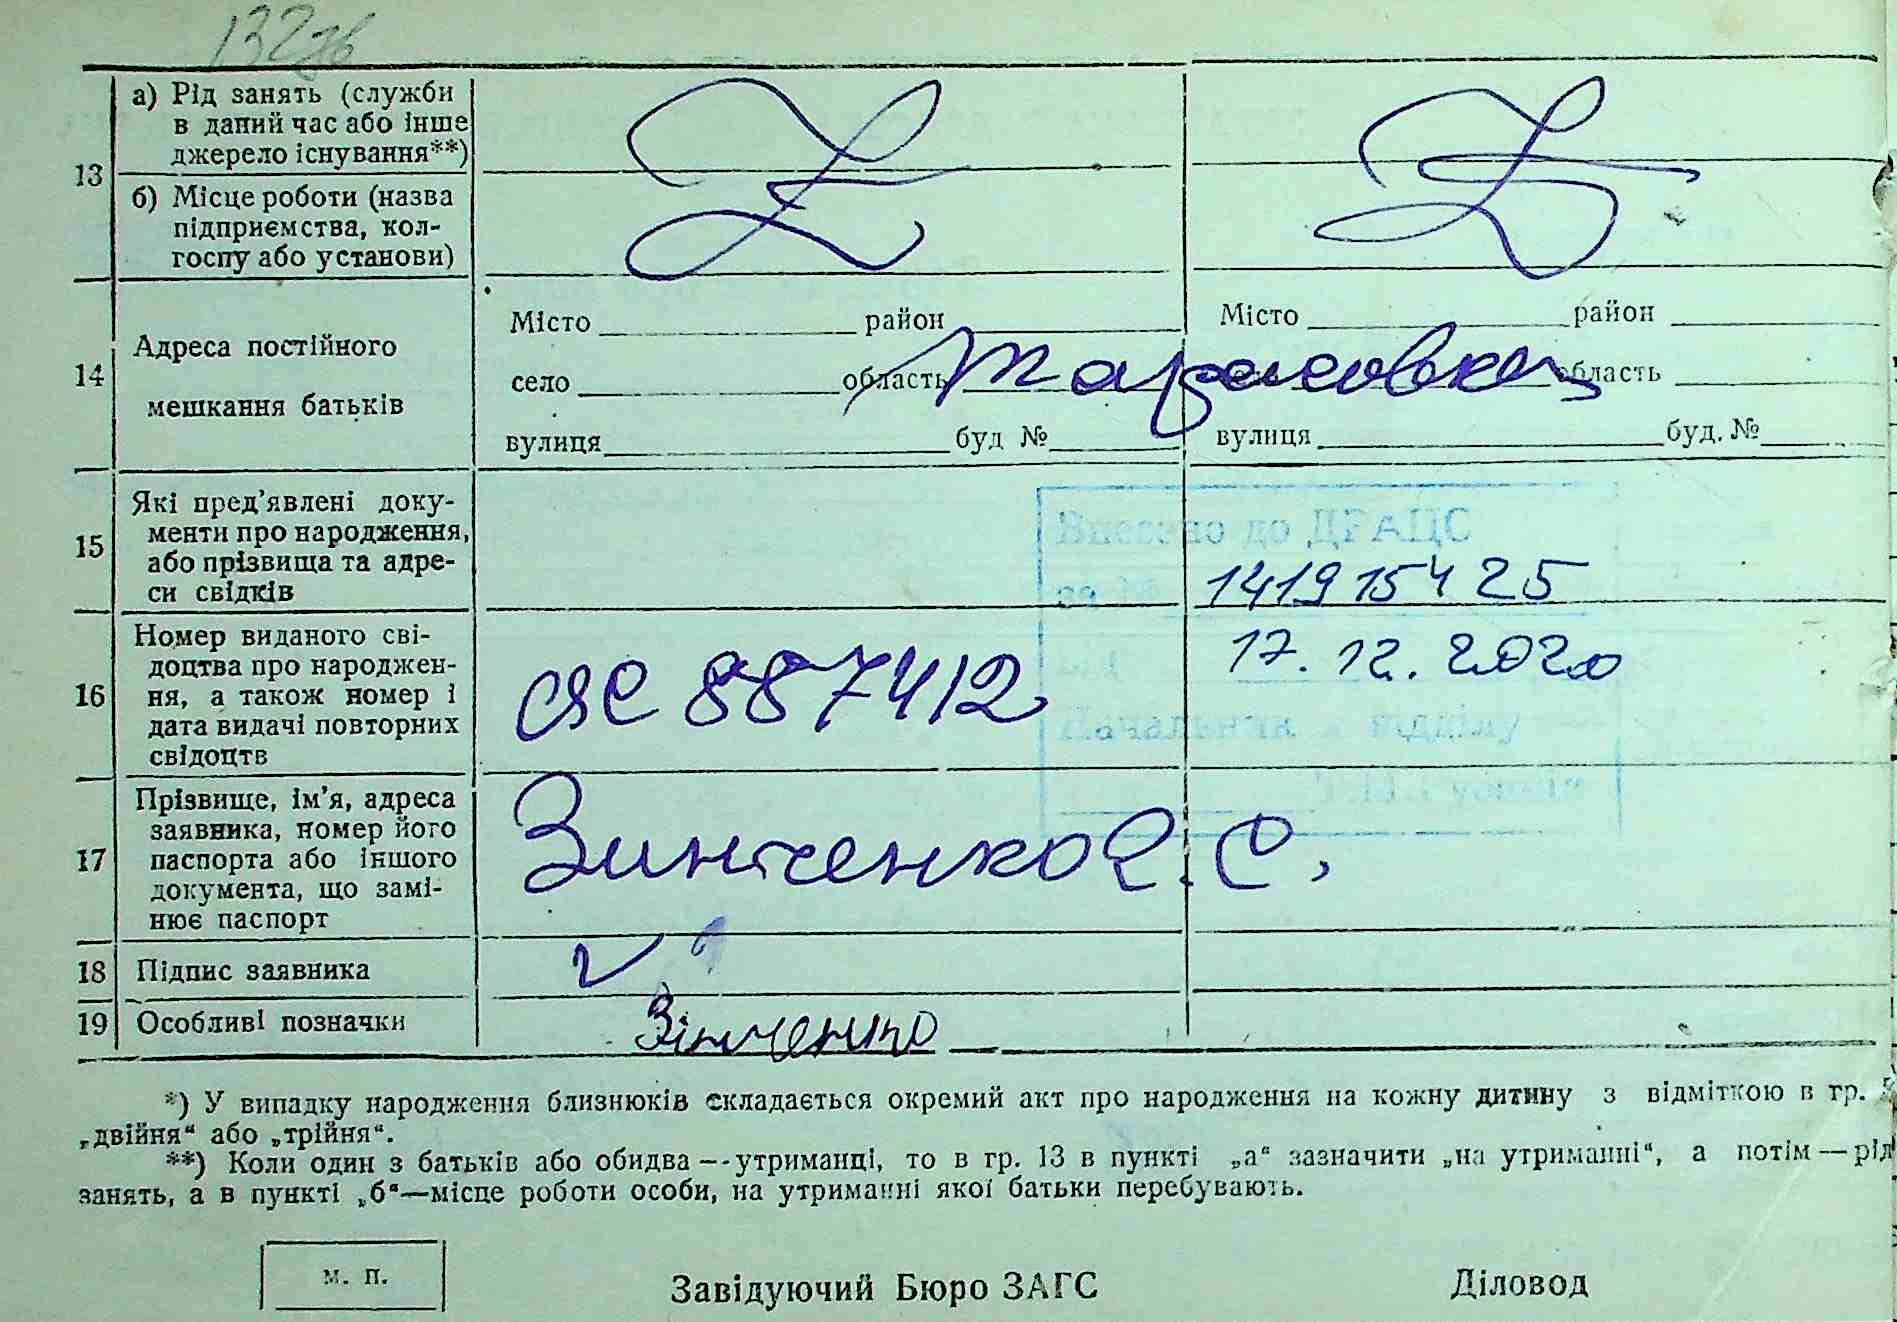 132зв
13
а) Рід занять (служби
в даний час або інше
джерело існування**)
б) Місце роботи (назва
підприємства, кол-
госпу або установи)
14
Адреса постійного
мешкання батьків
Місто район
село область
вулиця буд №
Місто район
область
вулиця буд. №
Тарасовка
15
Які пред’явлені доку-
менти про народження,
або прізвища та адре-
си свідків
Внесено до ДРАЦС
за № 141915425
від 17.12.2020
Начальник відділу
16
Номер виданого сві-
доцтва про народжен-
ня, а також номер і
дата видачі повторних
свідоцтв
ЯС 887412
17
Прізвище, ім’я, адреса
заявника, номер його
паспорта або іншого
документа, що замі-
нює паспорт
Зинченко Е. С.
18 Підпис заявника
19 Особливі позначки
Зінченко
*) У випадку народження близнюків складається окремий акт про народження на кожну дитину з відміткою в гр.
„двійня“ або „трійня“.
**) Коли один з батьків або обидва—утриманці, то в гр. 13 в пункті „а“ зазначити „на утриманні“, а потім — рід
занять, а в пункті „б“—місце роботи особи, на утриманні якої батьки перебувають.
м. п.
Завідуючий Бюро ЗАГС Діловод